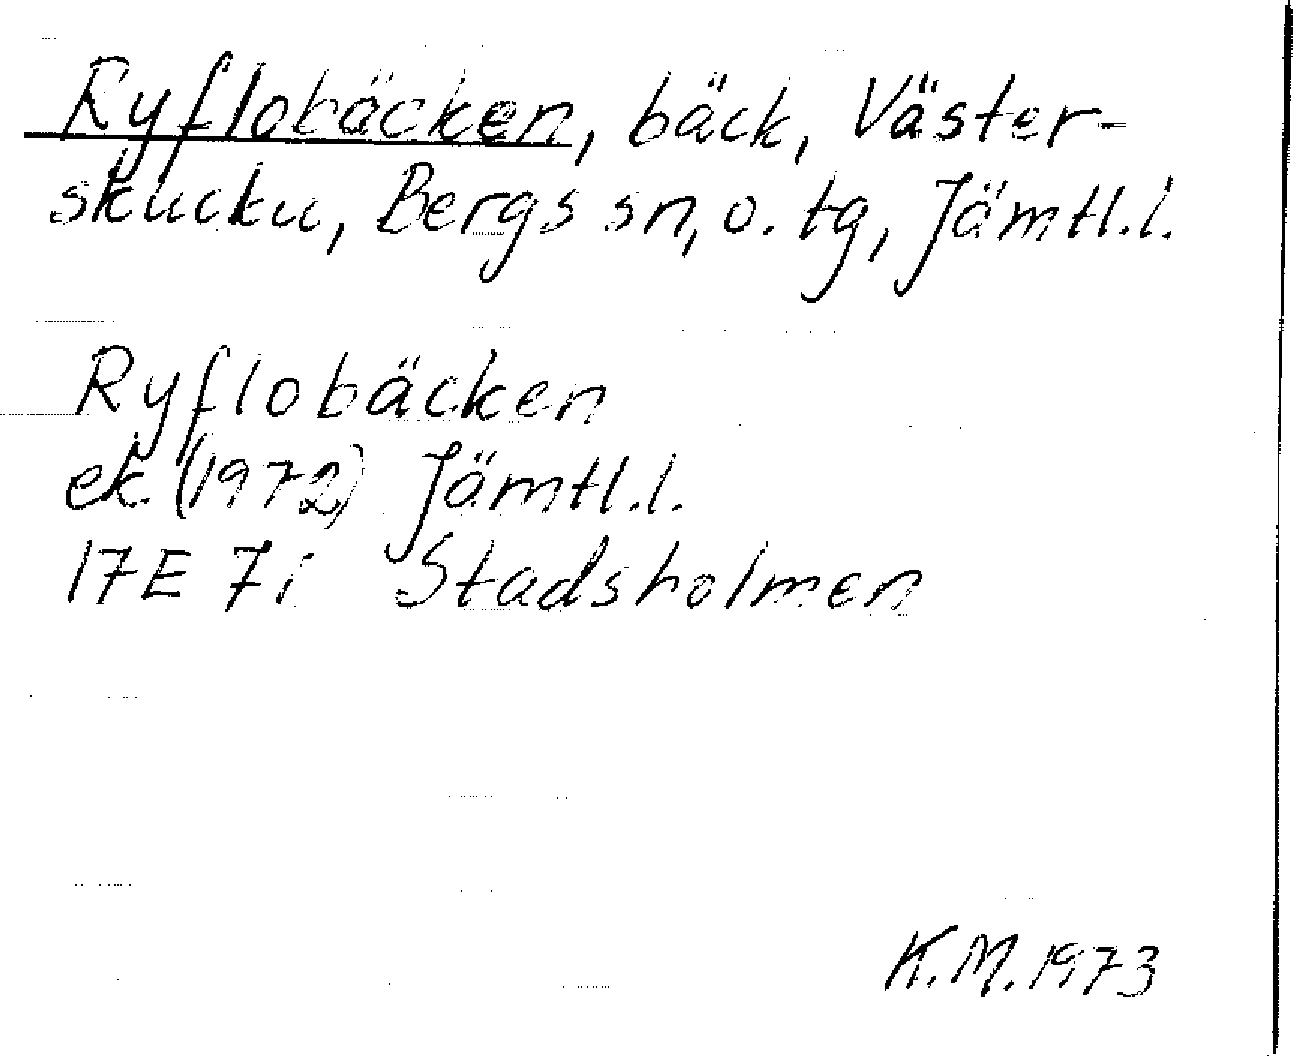 Ryflobäcken, bäck, Väster-
skucku, Bergs sn, o. tg, Jämtl.l.
Ryflobäcken
ek. (1972) Jämtl.l.
17E 7i Stadsholmen
K.M. 1973